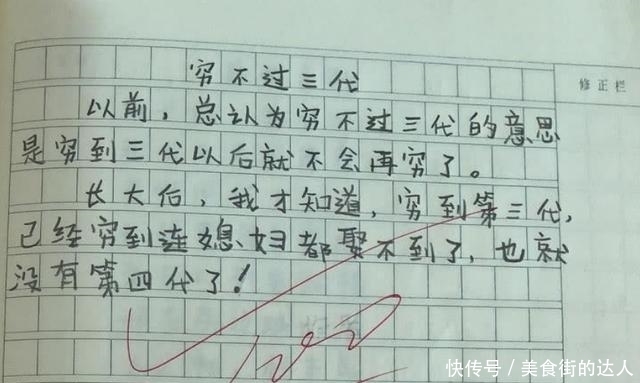 穷不过三代
修正栏
以前，总认为穷不过三代的意思
是穷到三代以后就不会再穷了。
长大后，我才知道，穷到第三代，
已经穷到连媳妇都娶不到了，也就
没有第四代了！
100
快传号／美食街的达人